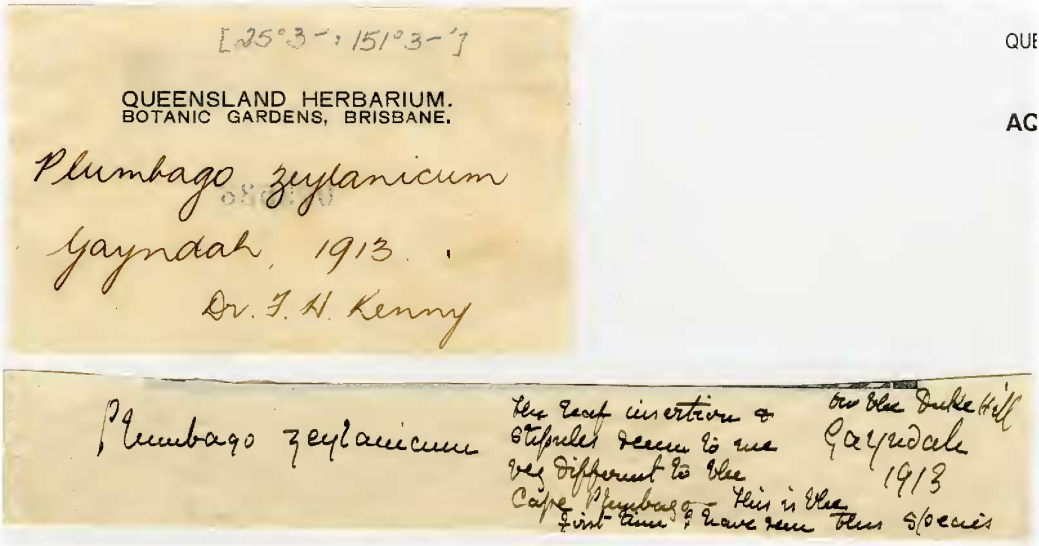 [25°3-: 151°3-']
QUE
QUEENSLAND HERBARIUM.
BOTANIC GARDENS, BRISBANE.
AQ
Plumbago zeylanicum
Gayndah, 1913.
Dr. F. H. Kenny
Plumbago zeylanicum
the leaf insertion &
stipules seem to me
very different to the
Cape Plumbago - this is the
first time I have seen this species
on the Duke Hill
Gayndah
1913